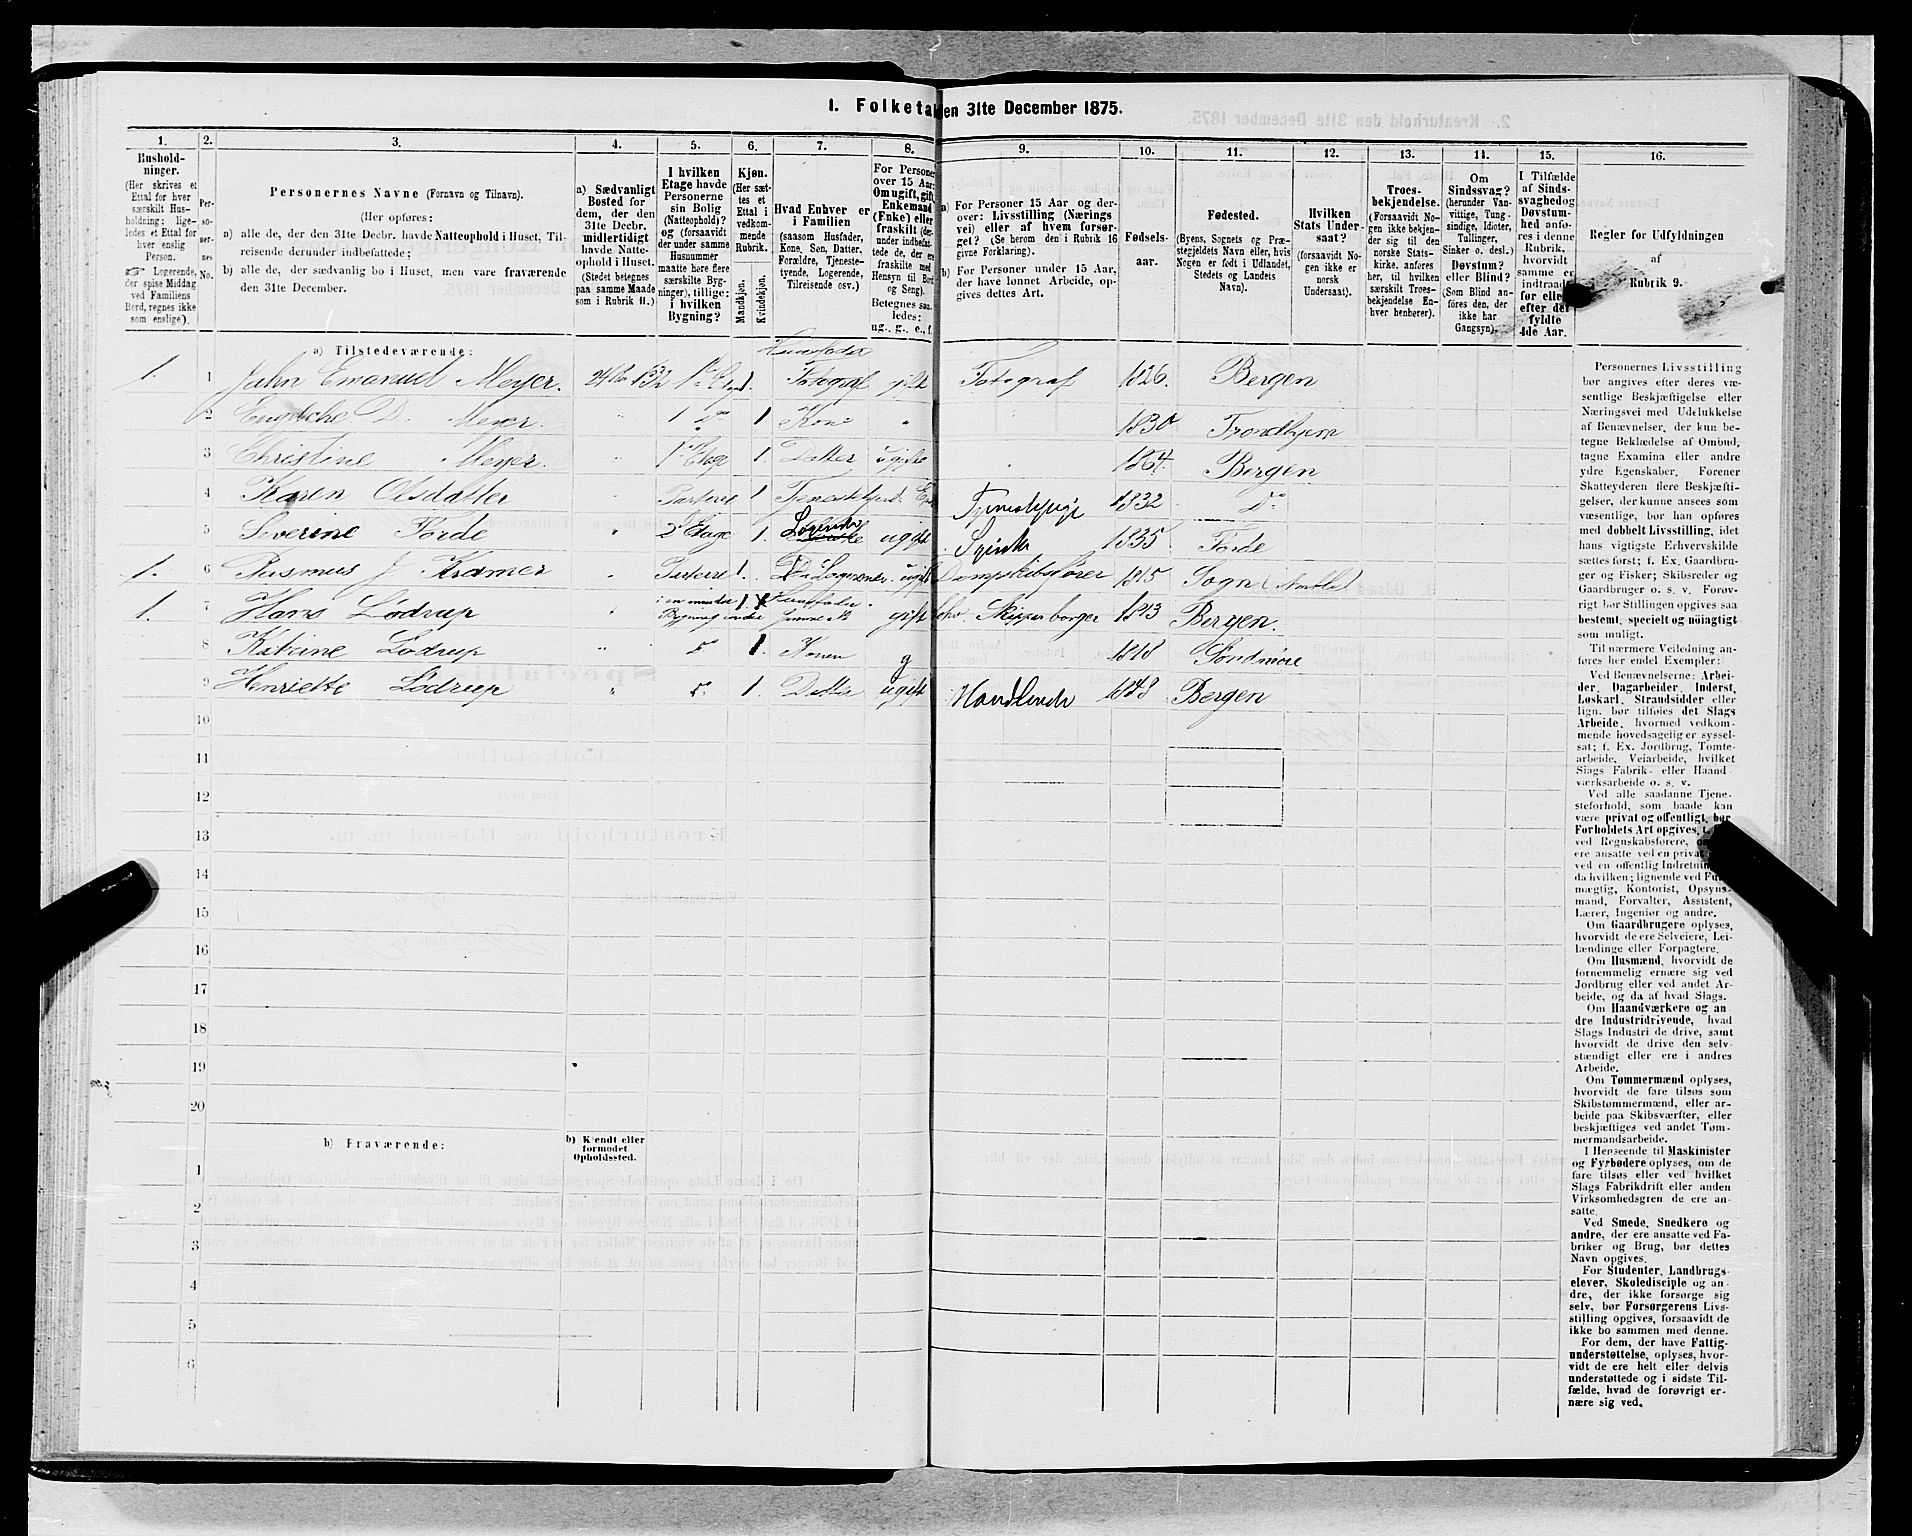 1. Folketa en 31te December 1875.
1. 2. 3. 4. 5. 6. 7. 8. 9. 10. 11. 12. 13. 14. 15. 16.
Hushold-
ninger.
(Her skrives et
Ettal for hver
særskilt Hus-
holdning; lige-
ledes et Ettal for
hver enslig
Person.
☞ Logerende,
der spise Middag
ved Familiens
Bord, regnes ikke
som enslige).
Per-
so-
ner-
nes
No.
Personernes Navne (Fornavn og Tilnavn).
(Her opføres:
a) alle de, der den 31te Decbr. havde Natteophold i Huset, Til-
reisende derunder indbefattede;
b) alle de, der sædvanlig bo i Huset, men vare fraværende
den 31te December.
a) Sædvanligt
Bosted for
dem, der den
31te Decbr.
midlertidigt
havde Natte-
ophold i Huset.
(Stedet betegnes
paa samme Maade
som i Rubrik 11.)
I hvilken
Etage havde
Personerne
sin Bolig
(Natteophold)?
og (forsaavidt
der under samme
Husnummer
maatte høre flere
særskilte Byg-
ninger), tillige:
i hvilken
Bygning?
Kjøn.
(Her sæt-
tes et
Ettal i
vedkom-
mende
Rubrik.
Mandkjøn.
Kvindekjøn.
Hvad Enhver er
i Familien
(saasom Husfader,
Kone, Søn, Datter,
Forældre, Tjeneste-
tyende, Logerende,
Tilreisende osv.)
For Personer
over 15 Aar:
Om ugift, gift,
Enkemand
(Enke) eller
fraskilt (der-
under indbefat-
tede de, der ere
fraskilte med
Hensyn til Bord
og Seng).
Betegnes saa-
ledes:
ug., g., e., f.
a) For Personer 15 Aar og der-
over: Livsstilling (Nærings
vei) eller af hvem forsør-
get? (Se herom den i Rubrik 16
givne Forklaring).
b) For Personer under 15 Aar,
der have lønnet Arbeide, op-
gives dettes Art.
Fødsels-
aar.
Fødested.
(Byens, Sognets og Præ-
stegjeldets Navn eller, hvis
Nogen er født i Udlandet,
Stedets og Landets
Navn).
Hvilken
Stats Under-
saat?
(forsaavidt No-
gen ikke er
norsk
Undersaat).
Troes-
bekjendelse.
(Forsaavidt No-
gen ikke bekjen-
der sig til den
norske Stats-
kirke, anføres
her, til hvilken
særskilt Troes-
bekjendelse En-
hver henhører).
Om
Sindssvag?
(herunder Van-
vittige, Tung-
sindige, Idioter,
Tullinger,
Sinker o. desl.)
Døvstum?
eller Blind?
(Som Blind an-
føres den, der
ikke har
Gangsyn).
I Tilfælde
af Sinds-
svaghed og
Døvstum-
hed anfø-
res i denne
Rubrik,
hvorvidt
samme er
indtraadt
før eller
efter det
fyldte
4de Aar.
Regler for Udfyldningen
af
Rubrik 9.
a) Tilstedeværende:
Huusfader
1. 1 John Emanuel Meyer. Fotograf gift Fotograf 1826. Bergen
2 D. Meyer. 1 Do 1 Kone " 1830 Trondhjem
3 Christine Meyer. 1 Etage 1. Datter ugift 1864. Bergen
4 Karen Olsdatter " Parterre 1 1832 Do
5 Severine Førde 2 Etage 1. Logerende ugift 1835 Førde
1. 6 Rasmus J Kramer " Parterre 1. Do Logerende ugift Dampskibsfører 1815 Sogn (Amble)
1. 7 Hans Lødrup " i en mindre Bygning 1 Huusfader gift Skipperborger 1813 Bergen.
8 Katrine Lødrup " Do 1. Konen g 1818 Søndmøre
9 Henriette Lødrup " Do 1. Datter ugift Handlende 1848 Bergen
10
11
12
13
14
15
16
17
18
19
20
b) Fraværende:
b) Kjendt eller
formodet
Opholdssted.
1
2
3
4
5
6
Personernes Livsstilling
bør angives efter deres væ-
sentlige Beskjæftigelse eller
Næringsvei med Udelukkelse
af Benævnelser, der kun be-
tegne Beklædelse af Ombud,
tagne Examina eller andre
ydre Egenskaber. Forener
Skatteyderen flere Beskjæfti-
gelser, der kunne ansees som
væsentlige, bør han opføres
med dobbelt Livsstilling, idet
hans vigtigste Erhvervskilde
sættes først; f. Ex. Gaardbru-
ger og Fisker; Skibsreder og
Gaardbruger o. s. v. Forøv-
rigt bør Stillingen opgives saa
bestemt, specielt og nöiagtigt
som muligt.
Til nærmere Veiledning an-
føres her endel Exempler:
Ved Benævnelserne: Arbei-
der, Dagarbeider, Inderst,
Løskarl, Strandsidder eller
lign. bør tilføies det Slags
Arbeide, hvormed vedkom-
mende hovedsagelig er syssel-
sat; f. Ex. Jordbrug, Tomte-
arbeide, Veiarbeide, hvilket
Slags Fabrik- eller Haand
værksarbeide o. s. v.
Ved alle saadanne Tjene-
steforhold, som baade kan
være privat og offentligt, bør
Forholdets Art opgives,
ved Regnskabsførere,
ere ansatte ved en privat
ved en offentlig Indretning
da hvilken; lignende ved Fuld-
mægtig, Kontorist, Opsyns-
mand, Forvalter, Assistent,
Lærer, Ingeniør og andre.
Om Gaardbrugere oplyses,
hvorvidt de ere Selveiere, Lei-
lændinge eller Forpagtere.
Om Husmænd, hvorvidt de
fornemmelig ernære sig ved
Jordbrug eller ved andet Ar-
beide, og da af hvad Slags.
Om Haandværkere og an
dre Industridrivende, hvad
Slags Industri de drive, samt
hvorvidt de drive den selv-
stændigt eller ere i andres
Arbeide.
Om Tømmermænd oplyses,
hvorvidt de fare tilsøs som
Skibstømmermænd, eller ar-
beide paa Skibsværfter, eller
beskjæftiges ved andet Tøm-
mermandsarbeide.
I Henseende til Maskinister
og Fyrbødere oplyses, om de
fare tilsøs eller ved hvilket
Slags Fabrikdrift eller anden
Virksomhedsgren de ere an-
satte.
Ved Smede, Snedkere og
andre, der ere ansatte ved Fa-
briker og Brug, bør dettes
Navn opgives.
For Studenter, Landbrugs-
elever, Skoledisciple og an-
dre, der ikke forsørge sig
selv, bør Forsørgerens Livs-
stilling opgives, forsaavidt de
ikke bo sammen med denne.
For dem, der have Fattig-
understøttelse, oplyses, hvor-
vidt de ere helt eller delvis
understøttede og i sidste Til-
fælde, hvad de forøvrigt er-
nære sig ved.